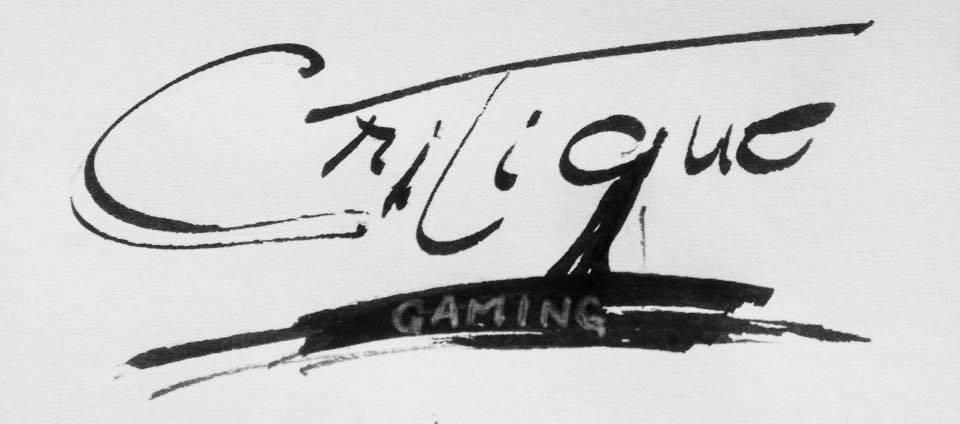 Critique
GAMING